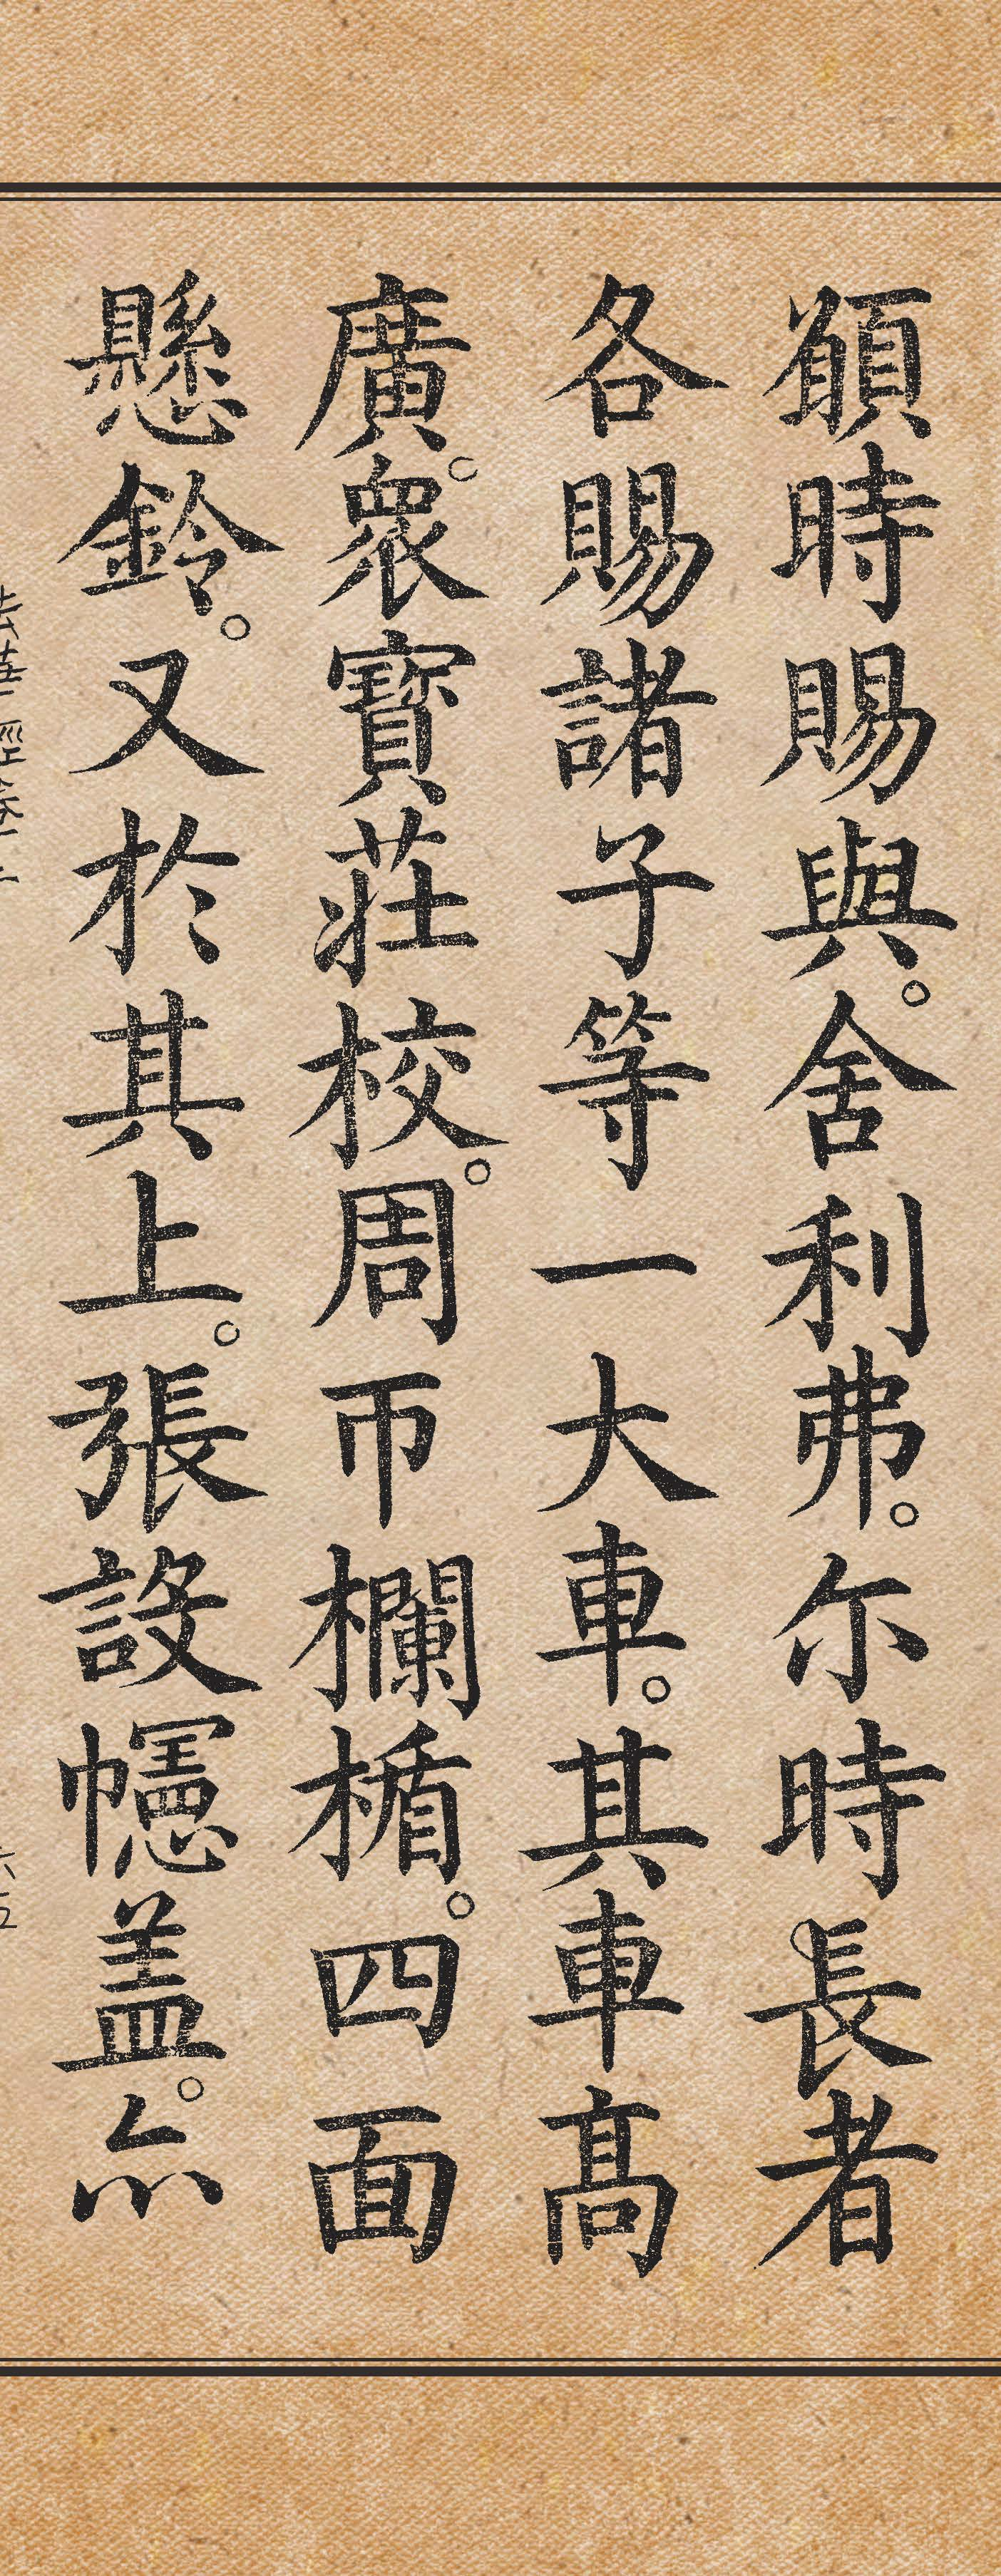 願時賜與。舍利弗。尒時長者
各賜諸子等一大車。其車高
廣。衆寶莊校。周帀欄楯。四面
懸鈴。又於其上。張設幰盖。亦